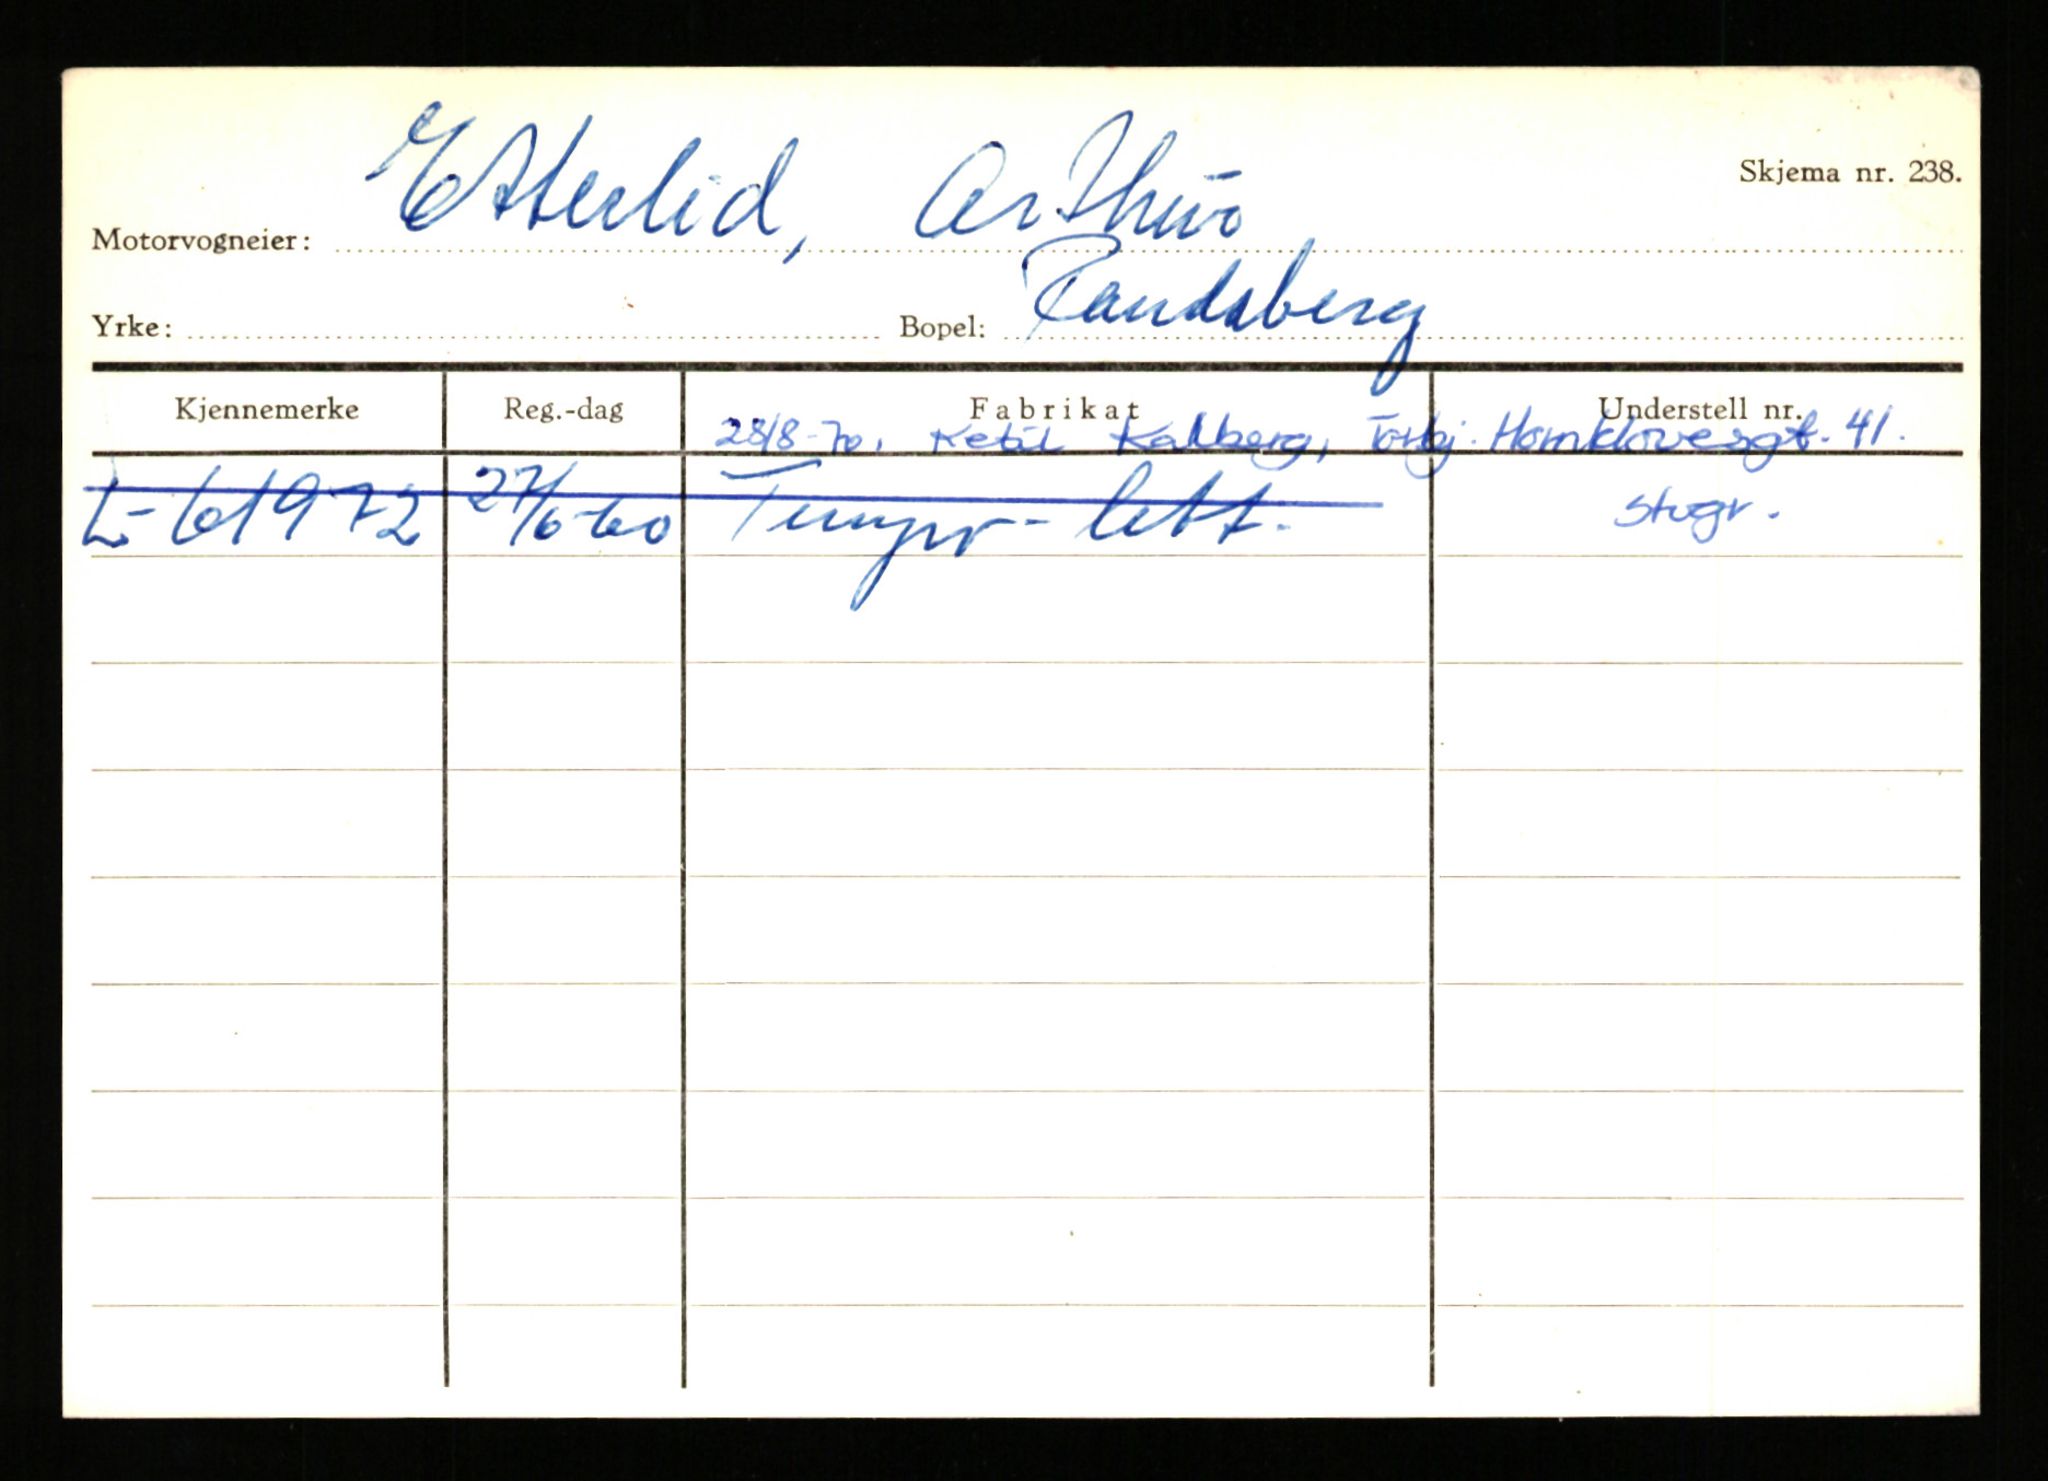 Skjema nr. 238.
Motorvogneier: Esterlid, Arthur
Yrke: Bopel: Randaberg
Kjennemerke Reg.-dag Fabrikat Understell nr.
28/8-70. Ketil Kalberg, Torbj. Hornklovesgt. 41.
L-61972 27/6-60 Tempo-lett. Stvgr.